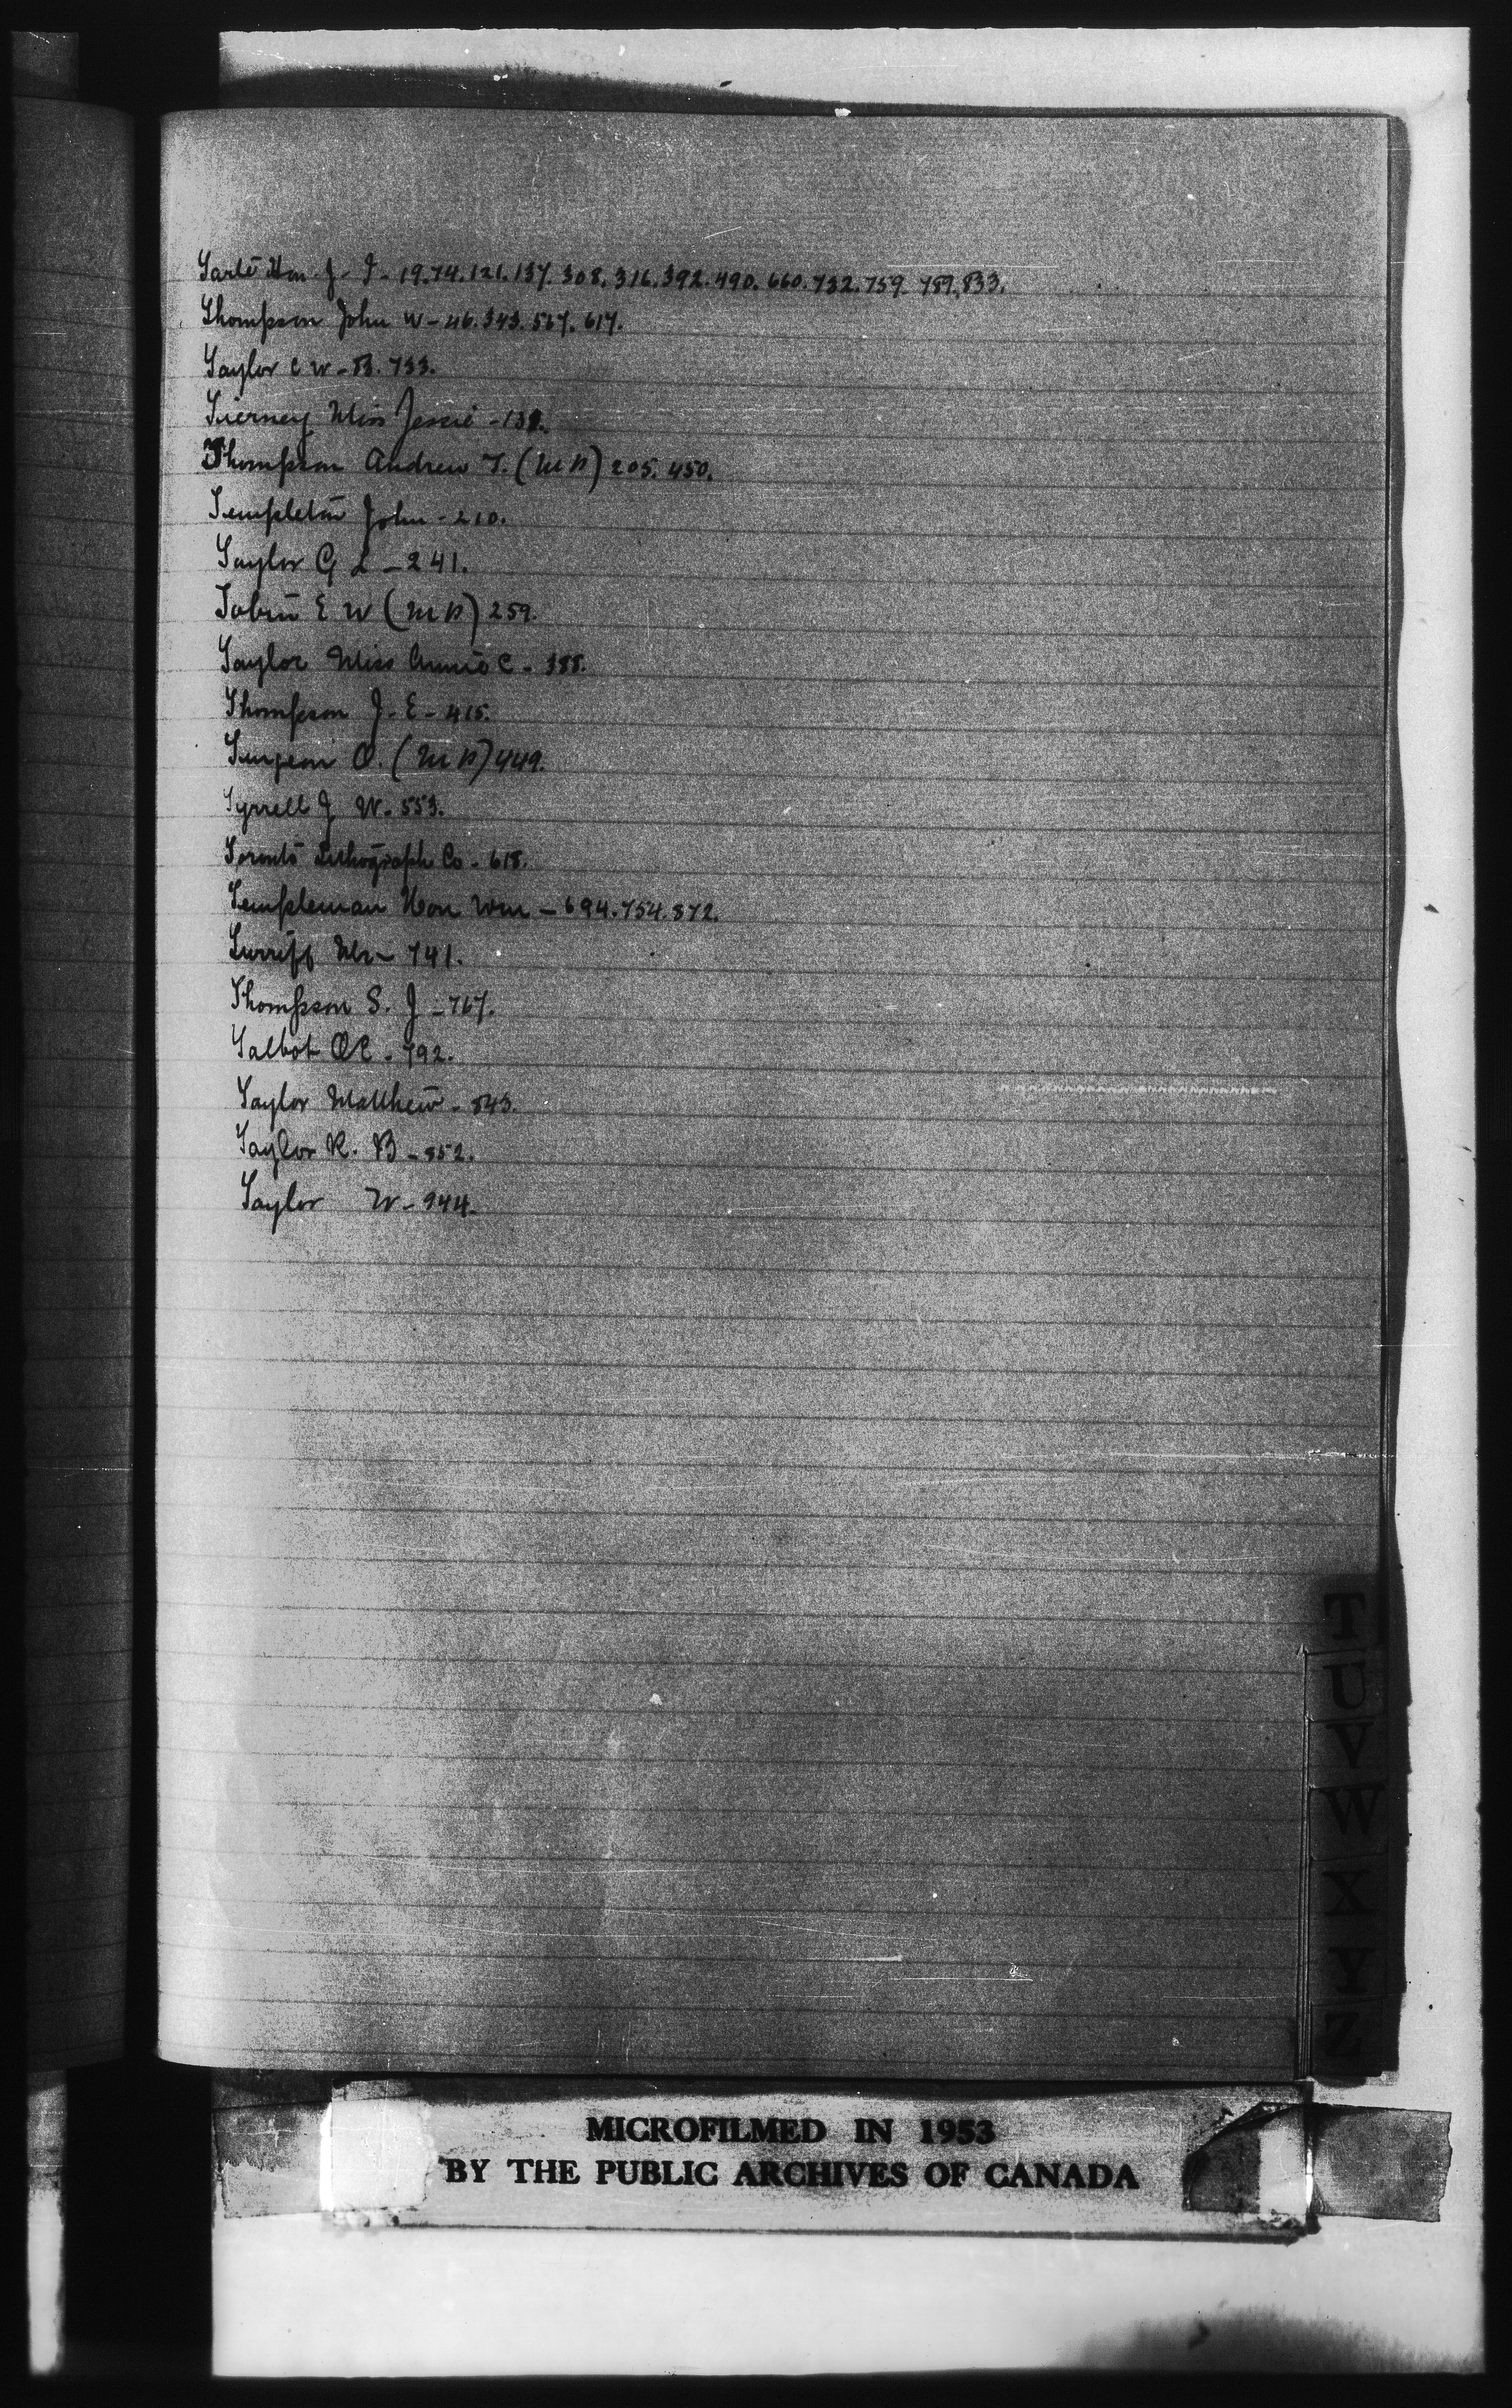 Tarte Hon. J. I - 19.74.121.137.308.316.392.490.660.732.759.789,833.
Thompson John W - 46.343.567.617.
Taylor C W - 733.
Tierney Miss Jessie -
Thompson Andrew T. (MP) 205.450.
Templeton John - 210.
Taylor G L - 241.
Tobin E W (MP) 259.
Taylor Miss Annie C - 388.
Thompson J. E - 415.
Turgeon O. (MP) 449.
Tyrrell J W. 553.
Toronto Lithograph Co - 618.
Templeman Hon Wm - 694.754.872.
Turriff Mr - 741.
Thompson S. J - 767.
Talbot O E - 792.
Taylor Matthew - 843.
Taylor R. B - 852.
Taylor W - 944.
T
U
V
W
X
Y
Z
MICROFILMED IN 1953
BY THE PUBLIC ARCHIVES OF CANADA